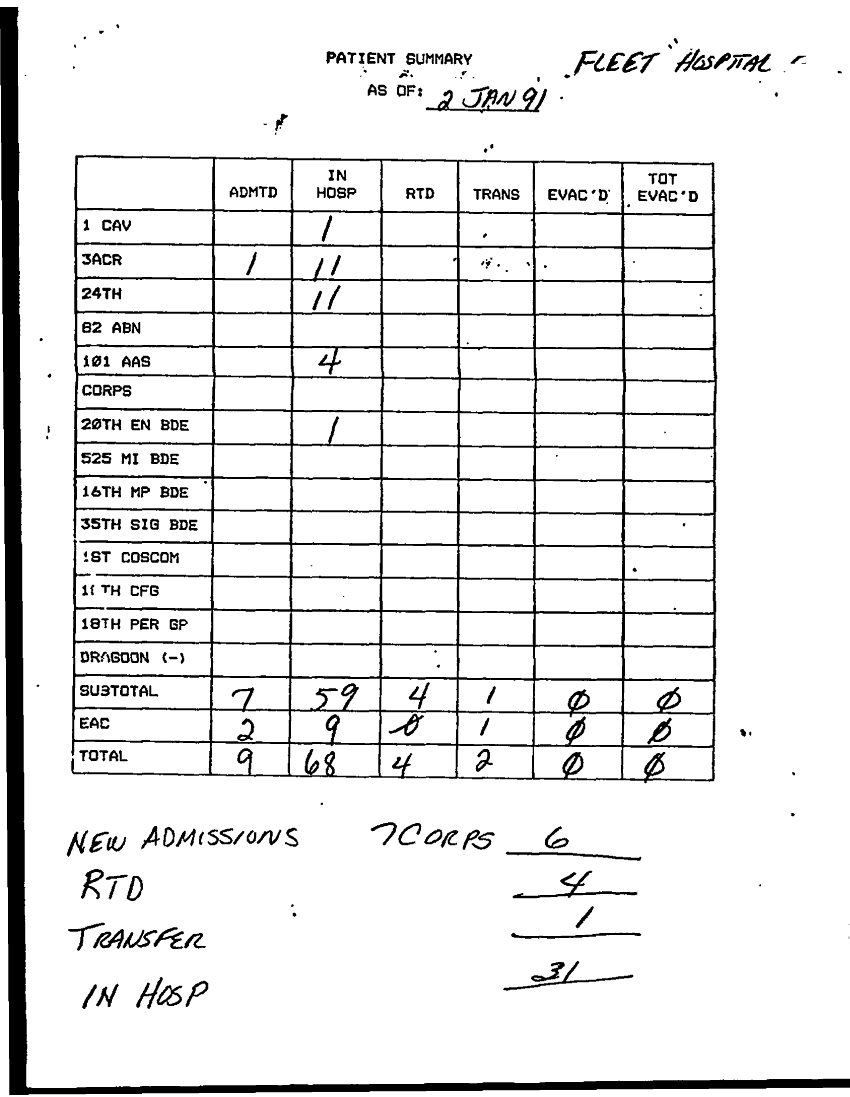 PATIENT SUMMARY
FLEET HOSPITAL
AS OF: 2 JAN 91
ADMTD IN HOSP RTD TRANS EVAC'D TOT EVAC'D
1 CAV 1
3ACR 1 11
24TH 11
82 ABN
101 AAS 4
CORPS
20TH EN BDE 1
525 MI BDE
16TH MP BDE
35TH SIG BDE
1ST COSCOM
TH CFG
18TH PER GP
DRAGOON (-)
SUBTOTAL 7 59 4 1 Ø Ø
EAC 2 9 Ø 1 Ø Ø
TOTAL 9 68 4 2 Ø Ø
NEW ADMISSIONS 7 CORPS 6
RTD 4
TRANSFER 1
IN HOSP 31